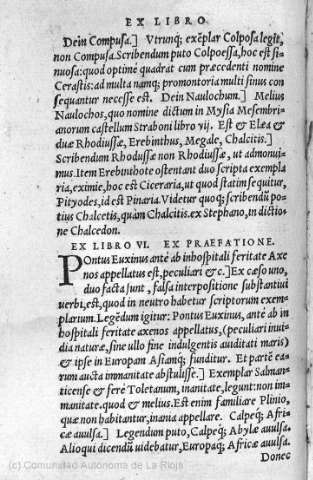 EX LIBRO
Dein Compusa.] Vtrunq; exẽplar Colposa legit,
non Compusa. Scribendum puto Colpoessa, hoc est si
nuosa: quod optimè quadrat cum præcedenti nomine
Cerastis: ad multa namq; promontoria multi sinus con
sequantur necesse est. Dein Naulochum.] Melius
Naulochos, quo nomine dictum in Mysia Mesembri-
anorum castellum Straboni libro vij. Est & Elæa &
duæ Rhodiussæ, Erebinthus, Megale, Chalcitis.]
Scribendum Rhodussæ non Rhodiussæ, ut admonui-
mus. Item Erebinthote ostentant duo scripta exempla
ria, eximie, hoc est Ciceraria, ut quod statim sequitur,
Pityodes, id est Pinaria. Videtur quoq; scribendũ po-
tius Chalcetis, quàm Chalcitis. ex Stephano, in dictio-
ne Chalcedon.
EX LIBRO VI. EX PRAEFATIONE.
Pontus Euxinus antè ab inhospitali feritate Axe
nos appellatus est, peculiari & c.] Ex cæso uno,
duo facta sunt, falsa interpositione substantiui
uerbi, est, quod in neutro habetur scriptorum exem-
plarum. Legẽdum igitur: Pontus Euxinus, antè ab in
hospitali feritate axenos appellatus, (peculiari inui-
dia naturæ, sine ullo fine indulgentis auiditati maris)
& ipse in Europam Asiamq; funditur. Et partẽ ea-
rum aucta immanitate abstulisse.] Exemplar Salman-
ticense & ferè Toletanum, inanitate, legunt: non im-
manitate. quod & melius. Est enim familiare Plinio,
quæ non habitantur, inania appellare. Calpeq; Afri-
cæ auulsa.] Legendum puto, Calpeq; Abylæ auulsa.
Alioqui dicendũ uidebatur, Europaq; Africæ auulsa.
Donec
(c) Comunidad Autónoma de La Rioja